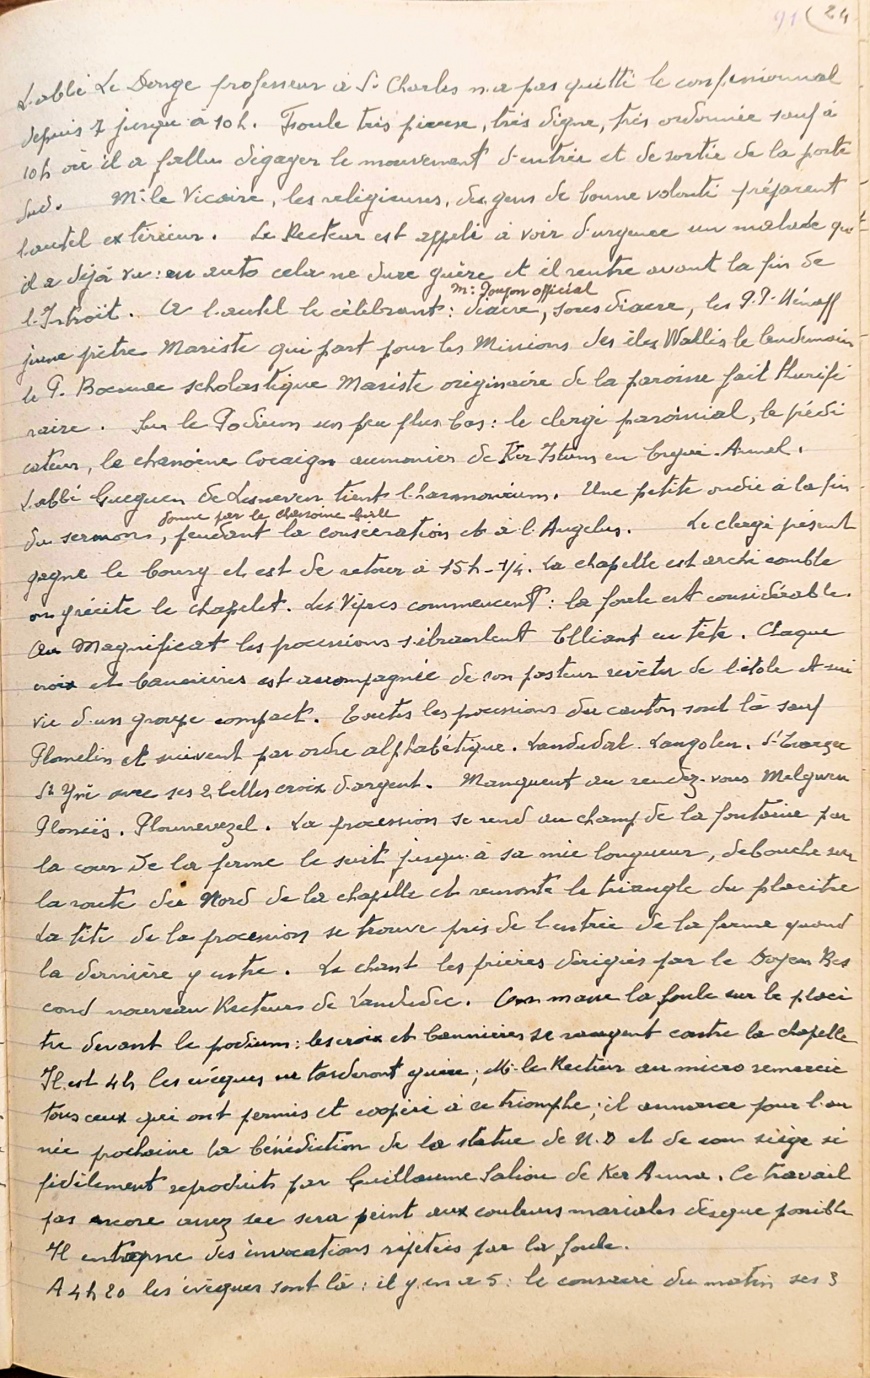 91 (24
L'abbé Le Donge professeur à St Charles n'a pas quitté le confessionnal
depuis 7 jusqu'à 10h. Foule très pieuse, très digne, très ordonnée sauf à
10h où il a fallu dégager le mouvement d'entrée et de sortie de la porte
Sud. Mr le Vicaire, les religieuses, des gens de bonne volonté préparent
l'autel extérieur. Le Recteur est appelé à voir d'urgence un malade qu'
il a déjà vu : en auto cela ne dure guère et il rentre avant la fin de
Mr official
l'Introït. A l'autel le célébrant : diacre, sous diacre, les P.P. Hénaff
jeune prêtre Mariste qui part pour les Missions des îles Wallis le lendemain
le P. scholastique Mariste originaire de la paroisse fait thurifé
raire. Sur le Podium un peu plus bas : le clergé paroissial, le prédi
cateur, le chanoine Cocaign aumonier de Ker Istum en Ergué-Armel.
L'abbé Gueguen de Lesneven tient l'harmonium. Une petite ondée à la fin
donné par le chanoine
du sermon, pendant la consécration et à l'Angelus. Le clergé présent
gagne le bourg et est de retour à 15h-1/4. La chapelle est archi comble
on y récite le chapelet. Les Vêpres commencent : la foule est considérable.
Au Magnificat les processions s'ébranlent Elliant en tête. Chaque
croix et bannières est accompagnée de son pasteur revêtu de l'étole et sui
vie d'un groupe compact. Toutes les processions du canton sont là sauf
Plomelin et suivent par ordre alphabétique. Landudal. Langolen. St Evarzec
St Yvi avec ses 2 belles croix d'argent. Manquent au rendez-vous Melgven
Plonéïs. Plounevezel. La procession se rend au champ de la fontaine par
la cour de la ferme le suit jusqu'à sa mie longueur, débouche sur
la route du Nord de la chapelle et remonte le triangle du placitre
La tête de la procession se trouve près de l'entrée de la ferme quand
la dernière y entre. Le chant les prières dirigées par le Doyen Bes
cond nouveau Recteur de Landudec. masse la foule sur le placi
tre devant le podium : les croix et bannières se rangent contre la chapelle
Il est 4h les évêques ne tarderont guère ; Mr le Recteur au micro remercie
tous ceux qui ont permis et coopéré à ce triomphe ; il annonce pour l'an
née prochaine la bénédiction de la statue de N.D et de son siège si
fidèlement reproduits par Guillaume Saliou de Ker Anna. Ce travail
pas encore assez sec sera peint aux couleurs mariales dès que possible
Il entrepne des invocations répétées par la foule.
A 4h 20 les évêques sont là : il y en a 5 : le consacré du matin ses 3